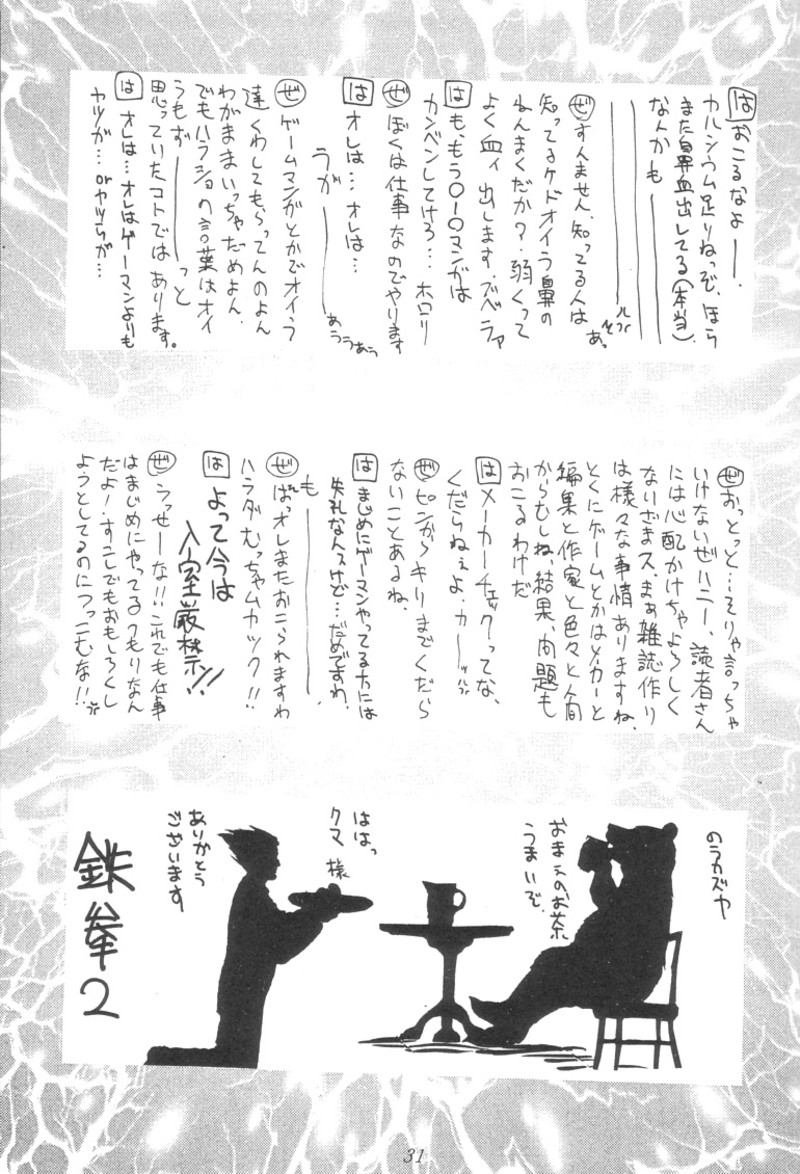 は おこるなよ——、
カルシウム足りねっぞ、ほら
また鼻血出してる(本当)、
なんかも————
ぜ すんません、知ってる人は
知ってるケドオイラ鼻の
ねんまくだか?弱くって
よく血ィ出します、ブベラァ
は も、もう〇ー〇マンがは
カンベンしてけろ…ホロリ
ぜ ぼくは仕事なのでやります
は オレは…オレは…
うが————
あううあう
ぜ ゲームマンがとかでオイラ
達くわしてもらってんのよん
わがままいっちゃだめよん、
でもハラショの言葉はオイ
うもず————っと
思っていたコトではあります。
は オレは…オレはゲーマンよりも
ヤツが…orヤツらが…
ぜ おっとっと…そりゃ言っちゃ
いけないぜハニー、読者さん
には心配かけちゃよろしく
ないざまス、まぁ雑誌作り
は様々な事情ありますね、
とくにゲームとかはメーカーと
編集と作家と色々と人間
からむしね、結果、問題も
おこるわけだ
は メーカーチェックってな、
くだらねぇよ、カーッ
ぜ ピンからキリまでくだら
ないことあるね、
は まじめにゲーマンやってる方には
失礼なんスけど…だめですわ、
も————、
ぜ ばっオレまたおこられますわ
ハラダむっちゃムカック!!
は よって今は
入室厳禁!!
ぜ うっせーな!!これでも仕事
はまじめにやってるつもりなん
だよ!すこしでもおもしろくし
ようとしてるのにつっこむな!!
のうカズヤ
おまえのお茶
うまいぞ、
ははっ
クマ様
ありがとう
ございます
鉄拳2
31